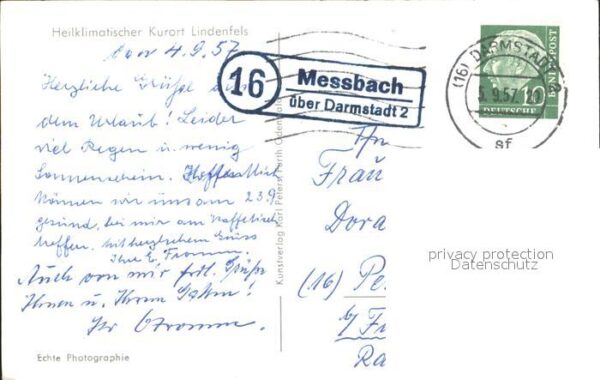 Heilklimatischer Kurort Lindenfels
4.9.57
Herzliche Grüße aus
dem Urlaub! Leider
viel Regen u. wenig
Sonnenschein. Hoffentlich
können wir uns am 23.9.
gesund, bei mir am Kaffeetisch
treffen. Mit herzlichem Gruss
Ihre E. Fromm.
Auch von mir frdl. Grüße
Ihnen u. Ihrem Gatten!
Ihr Fromm.
Echte Photographie
Kunstverlag Karl Peters Fürth Odenwald
16
Messbach
über Darmstadt 2
(16) DARMSTADT 2
5.9.57
af
20
DEUTSCHE BUNDESPOST
Frau
Dora
(16)
Fr
privacy protection
Datenschutz